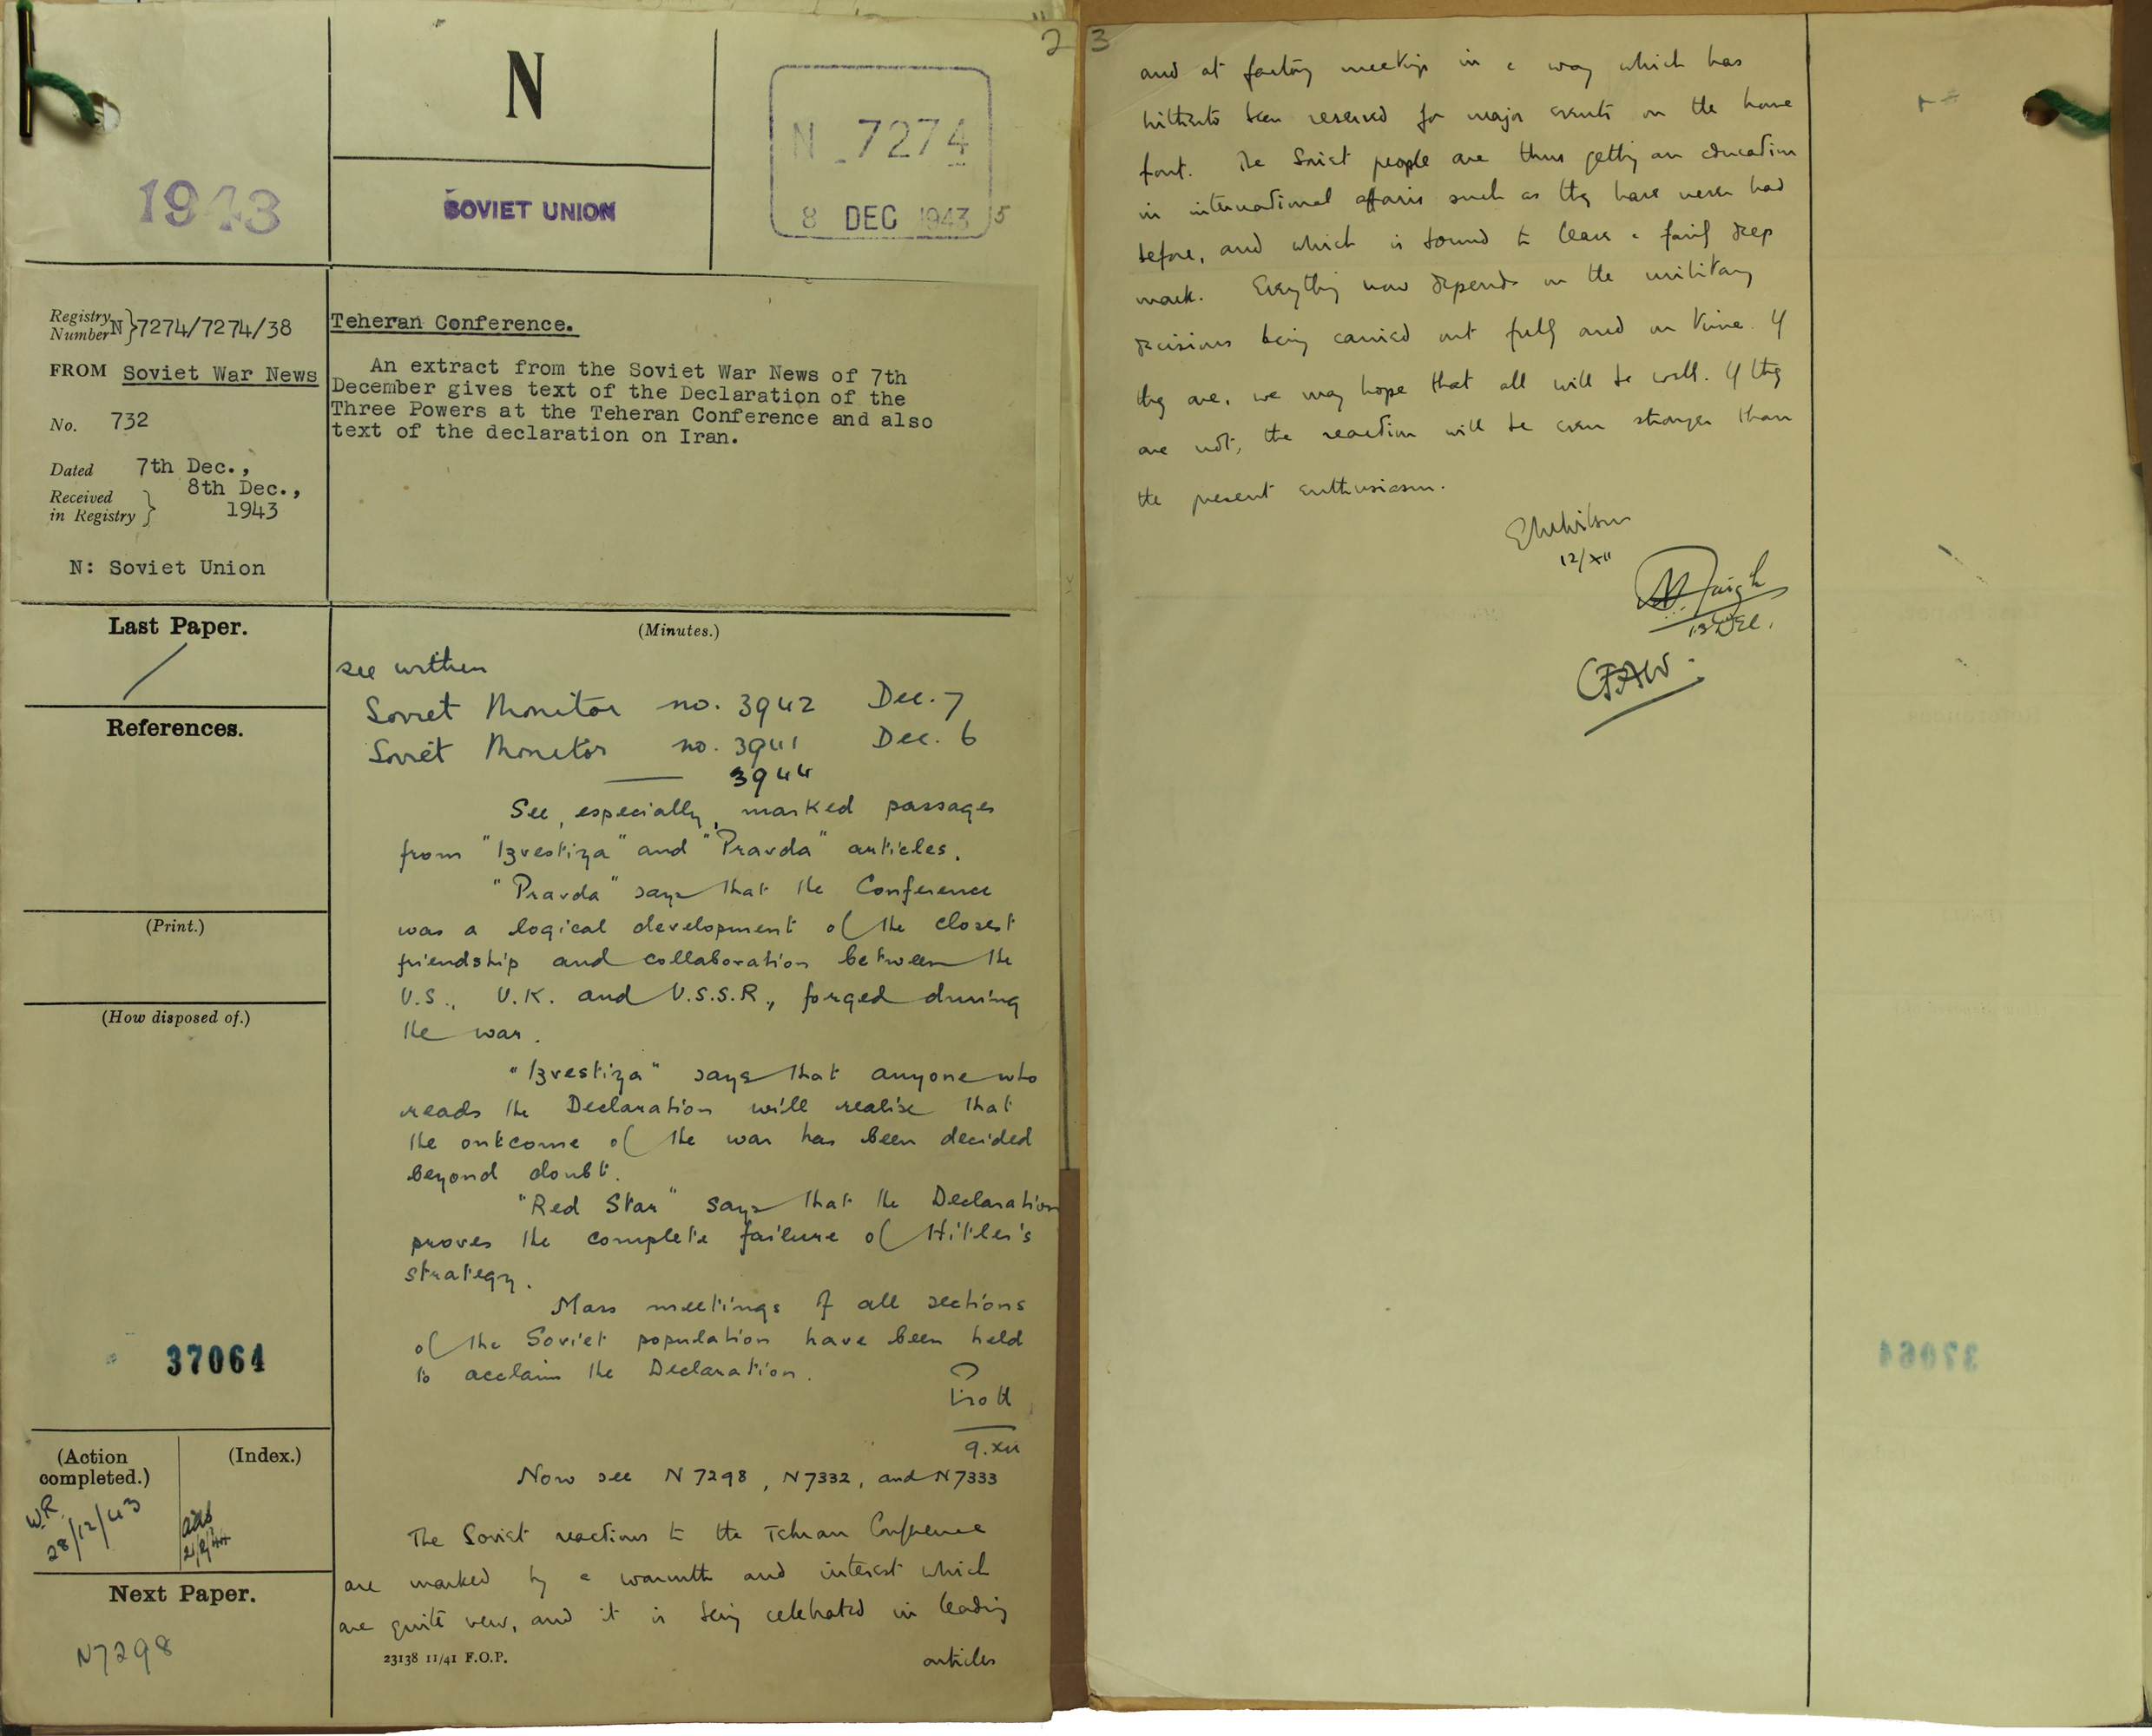 2
N
N 7274
8 DEC 1943
5
1943
SOVIET UNION
Registry
Number
N} 7274/7274/38
FROM Soviet War News
No. 732
Dated 7th Dec.,
Received
in Registry}
8th Dec.,
1943
N: Soviet Union
Teheran Conference.
An extract from the Soviet War News of 7th
December gives text of the Declaration of the
Three Powers at the Teheran Conference and also
text of the declaration on Iran.
Last Paper.
References.
(Print.)
(How disposed of.)
37064
(Action
completed.)
W.R.
28/12/43
(Index.)
21/2/44
Next Paper.
N7298
(Minutes.)
see within
Soviet Monitor no. 3942 Dec. 7
Soviet Monitor no. 3941 Dec. 6
3944
See, especially, marked passages
from "Izvestiya" and "Pravda" articles.
"Pravda" says that the Conference
was a logical development of the closest
friendship and collaboration between the
U.S., U.K. and U.S.S.R., forged during
the war.
"Izvestiya" says that anyone who
reads the Declaration will realise that
the outcome of the war has been decided
beyond doubt.
"Red Star" says that the Declaration
proves the complete failure of Hitler's
strategy.
Mass meetings of all sections
of the Soviet population have been held
to acclaim the Declaration.
9.xii
Now see N 7298, N 7332, and N 7333
The Soviet reactions to the Tehran Conference
are marked by a warmth and interest which
are quite new, and it is being celebrated in leading
articles
23138 11/41 F.O.P.
3
and at factory meetings in a way which has
hitherto been reserved for major events on the home
front. The Soviet people are thus getting an education
in international affairs such as they have never had
before, and which is bound to leave a fairly deep
mark. Everything now depends on the military
decisions being carried out fully and on time. If
they are, we may hope that all will be well. If they
are not, the reaction will be even stronger than
the present enthusiasm.
GMWilson
12/XII
13 Dec.
CFAW.